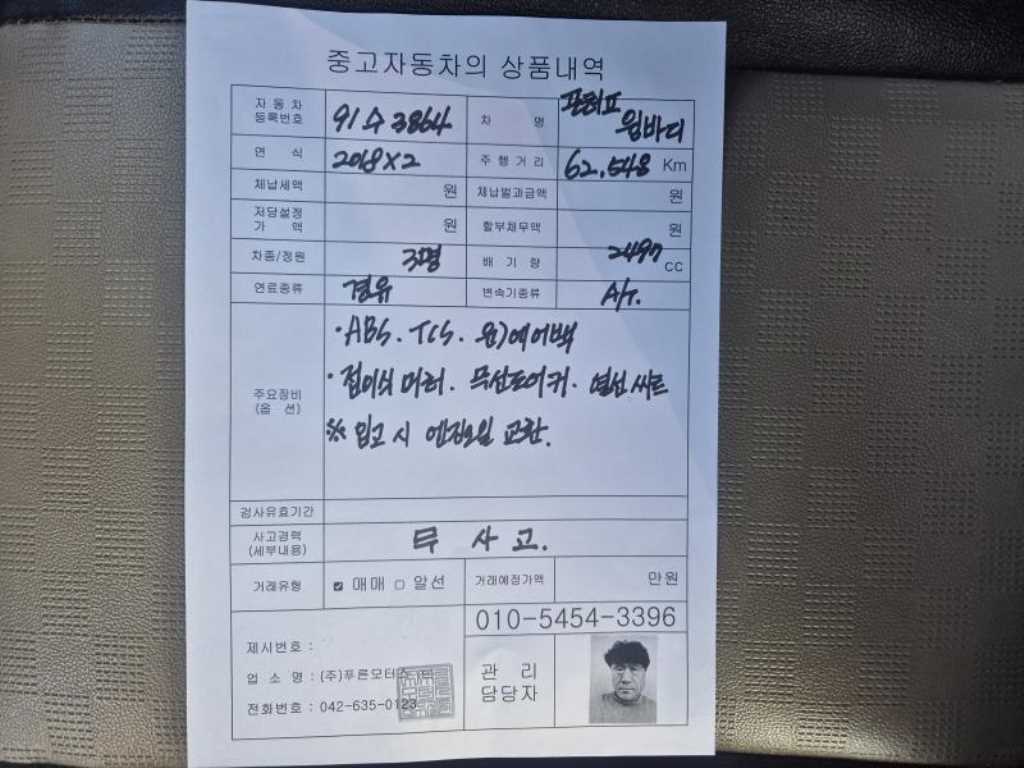 중고자동차의 상품내역
자동차 등록번호 91수3864 차 명 파워프 윙바디
연 식 2018×2 주행거리 62,548 Km
체납세액 원 체납벌과금액 원
저당설정 가 액 원 할부채무액 원
차종/정원 3명 배 기 량 2497 CC
연료종류 경유 변속기종류 A/T.
주요장비 (옵 션)
·ABS. TCS. 운)에어백
·접이식 미러. 무선도어키. 열선 씨트
※ 입고 시 엔진오일 교환.
검사유효기간
사고경력 (세부내용) 무 사 고.
거래유형 ☑ 매매 □ 알선 거래예정가액 만원
010-5454-3396
제시번호 :
업 소 명 : (주)푸른모터스
전화번호 : 042-635-0123
관 리 담당자